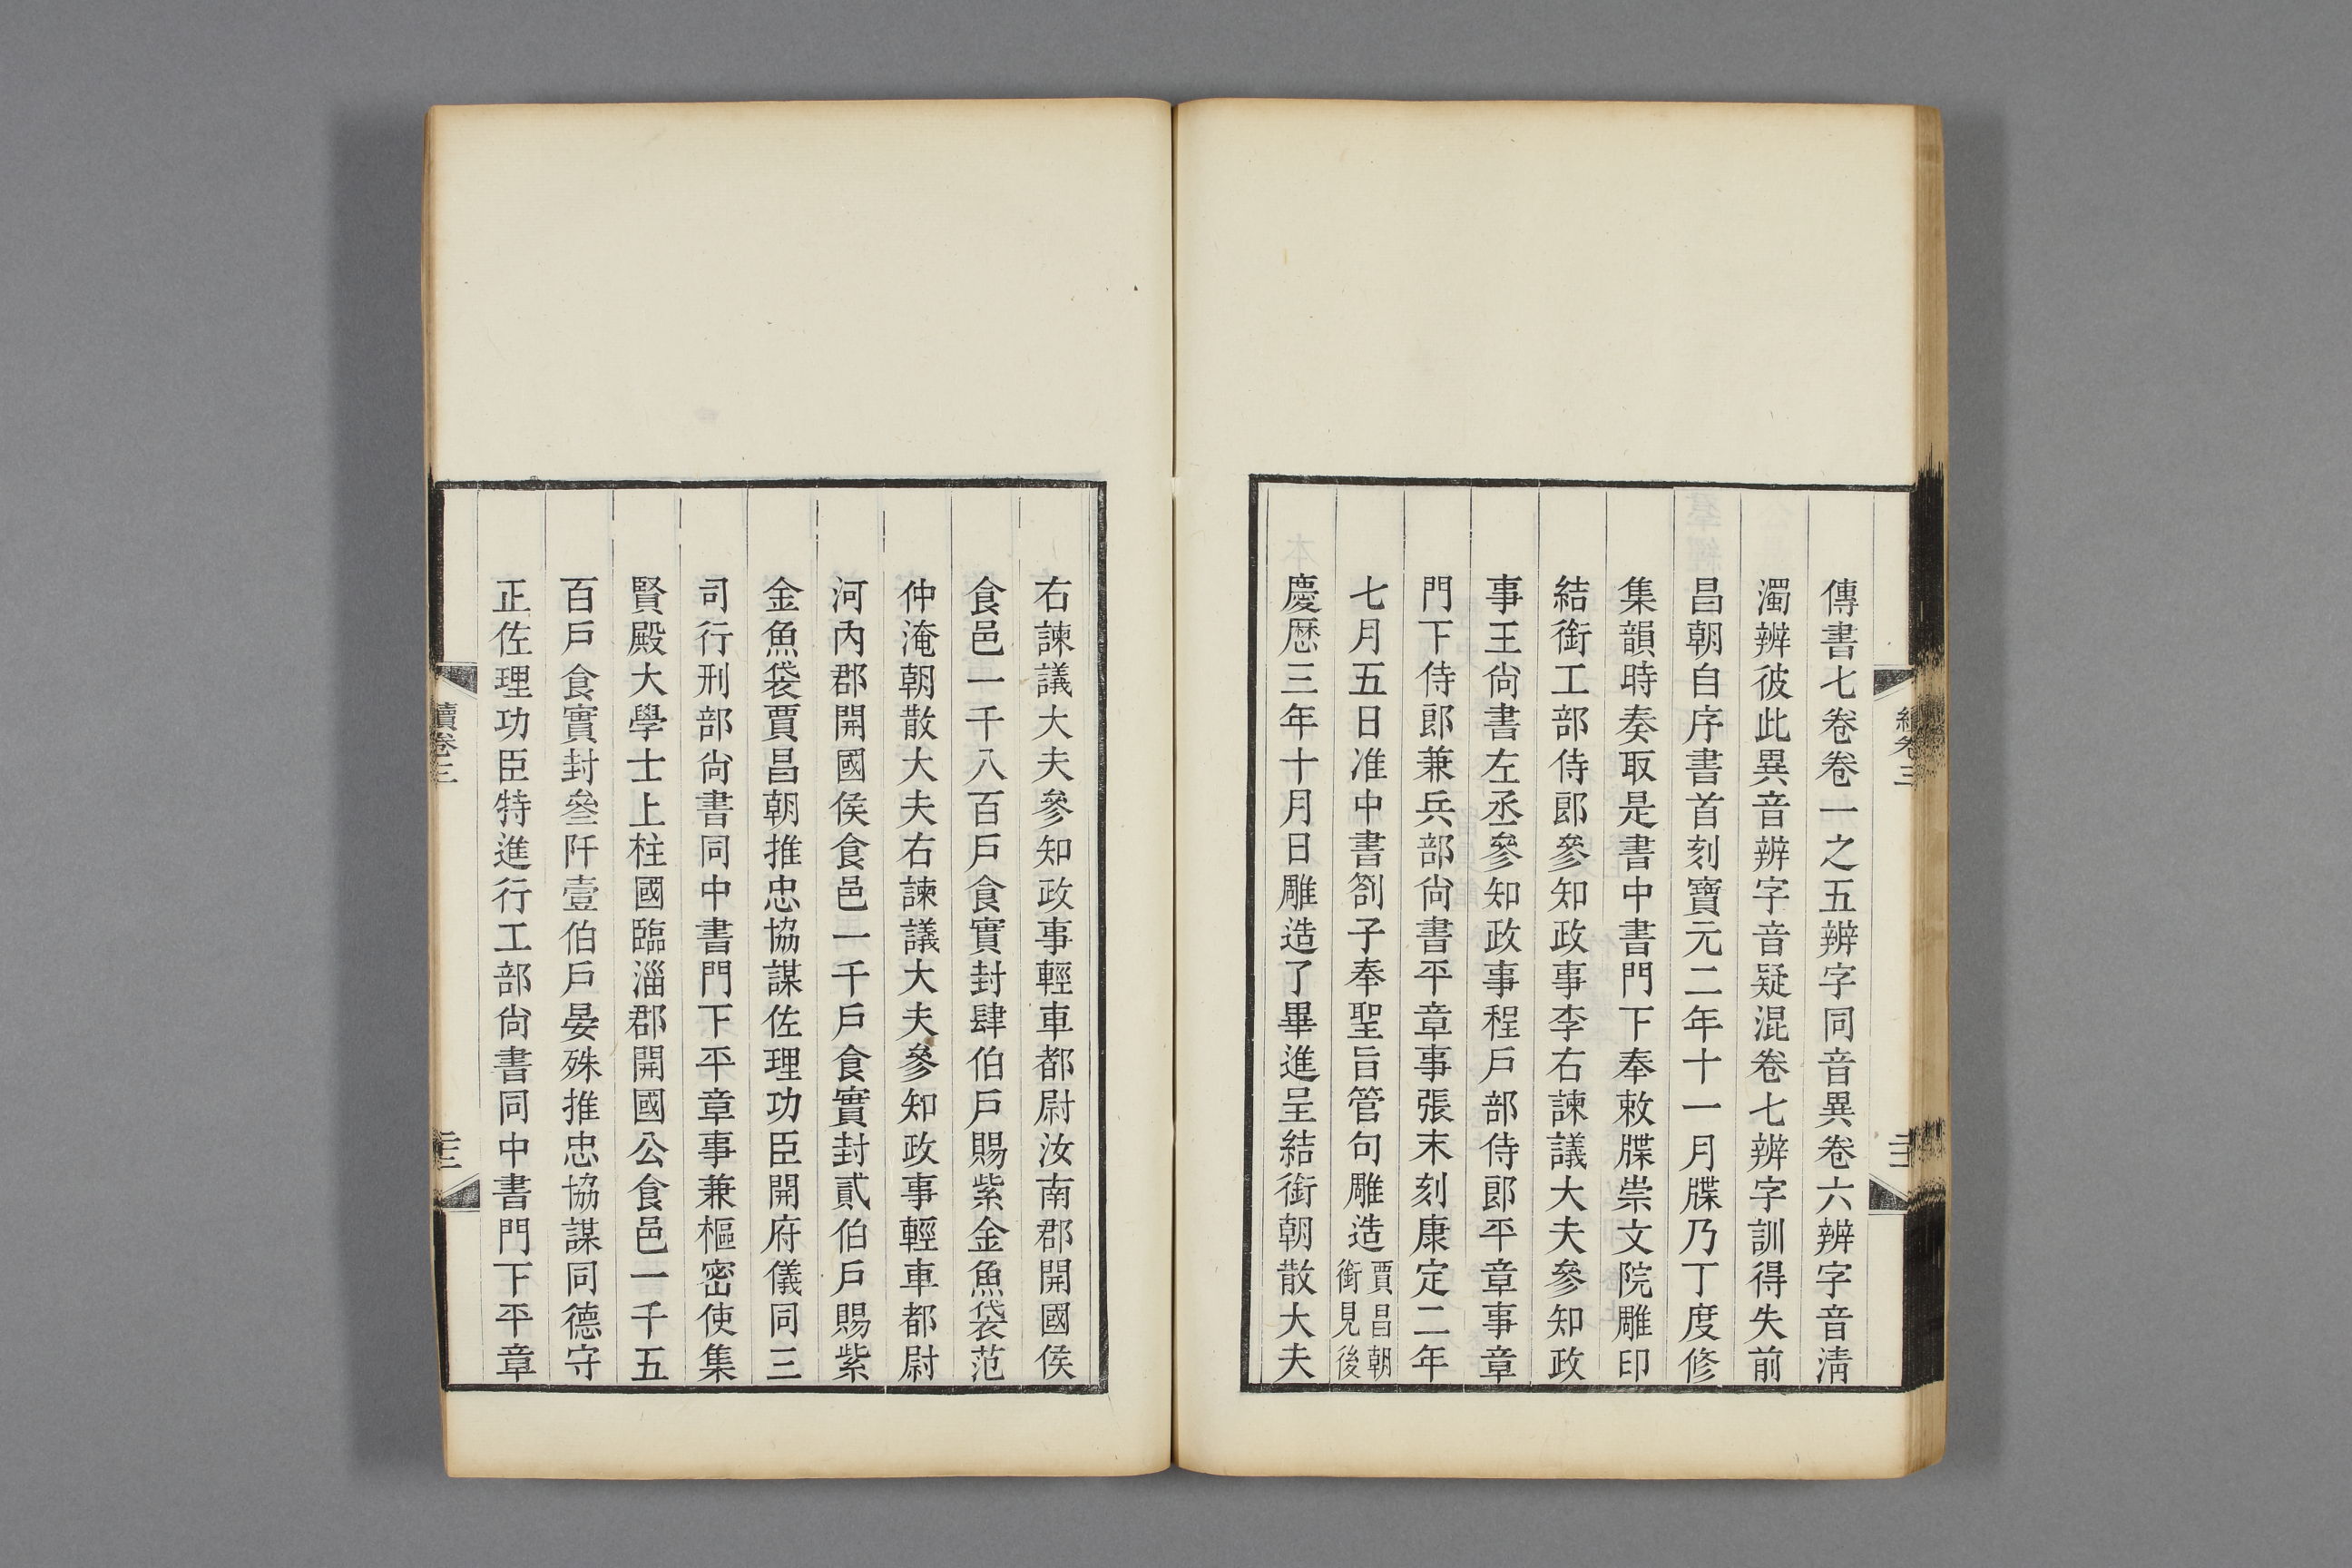 傳書七卷卷一之五辨字同音異卷六辨字音淸
濁辨彼此異音辨字音疑混卷七辨字訓得失前
昌朝自序書首刻寶元二年十一月牒乃丁度修
集韻時奏取是書中書門下奉敕牒崇文院雕印
結銜工部侍郎參知政事李右諫議大夫參知政
事王尙書左丞參知政事程戶部侍郎平章事章
門下侍郎兼兵部尙書平章事張末刻康定二年
七月五日准中書劄子奉聖旨管句雕造賈昌朝銜見後
慶厯三年十月日雕造了畢進呈結銜朝散大夫
右諫議大夫參知政事輕車都尉汝南郡開國侯
食邑一千八百戶食實封肆伯戶賜紫金魚袋范
仲淹朝散大夫右諫議大夫參知政事輕車都尉
河內郡開國侯食邑一千戶食實封貳伯戶賜紫
金魚袋賈昌朝推忠協謀佐理功臣開府儀同三
司行刑部尙書同中書門下平章事兼樞密使集
賢殿大學士上柱國臨淄郡開國公食邑一千五
百戶食實封叄阡壹伯戶晏殊推忠協謀同德守
正佐理功臣特進行工部尙書同中書門下平章
續卷三